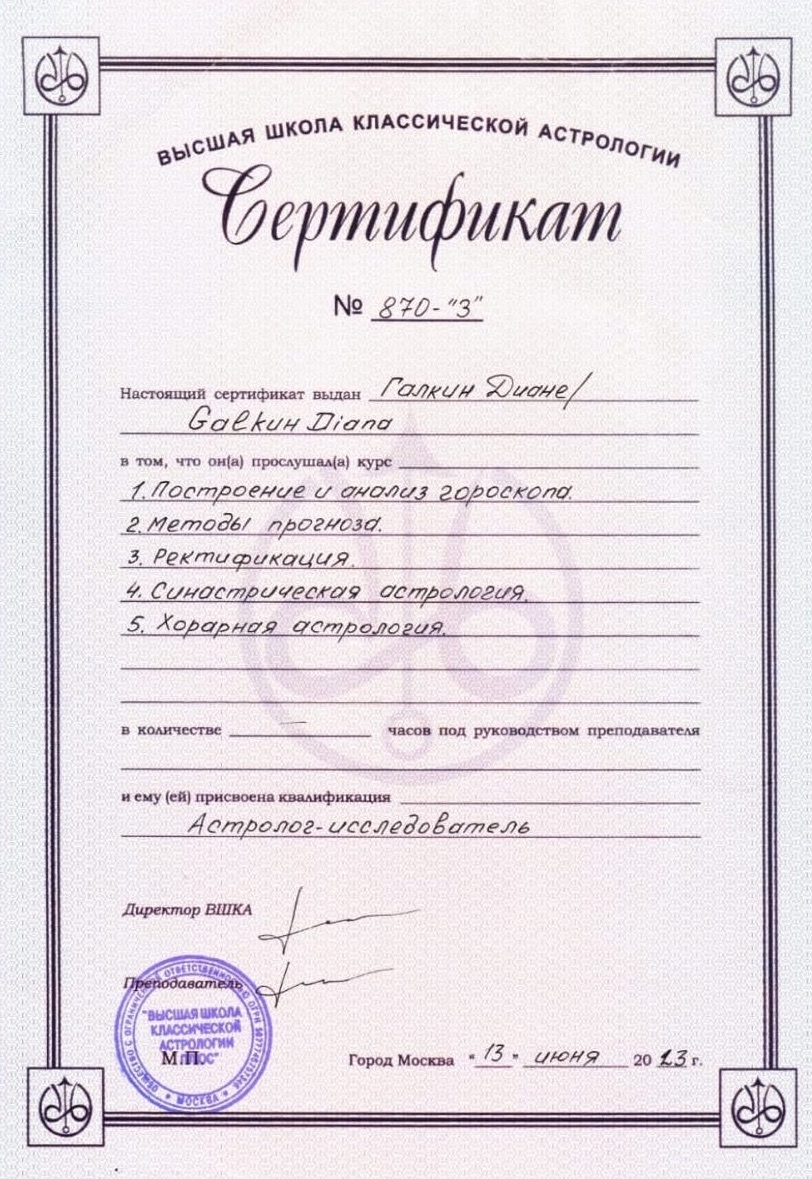 ВЫСШАЯ ШКОЛА КЛАССИЧЕСКОЙ АСТРОЛОГИИ
Сертификат
№ 870-"З"
Настоящий сертификат выдан Галкин Диане/
Galkин Diana
в том, что он(а) прослушал(а) курс
1. Построение и анализ гороскопа.
2. Методы прогноза.
3. Ректификация.
4. Синастрическая астрология.
5. Хорарная астрология.
в количестве — часов под руководством преподавателя
и ему (ей) присвоена квалификация
Астролог-исследователь
Директор ВШКА
Преподаватель
ОБЩЕСТВО С ОГРАНИЧЕННОЙ ОТВЕТСТВЕННОСТЬЮ ОГРН
"ВЫСШАЯ ШКОЛА
КЛАССИЧЕСКОЙ
АСТРОЛОГИИ
ПЛЮС"
М.П.
* МОСКВА *
Город Москва "13" июня 2013 г.